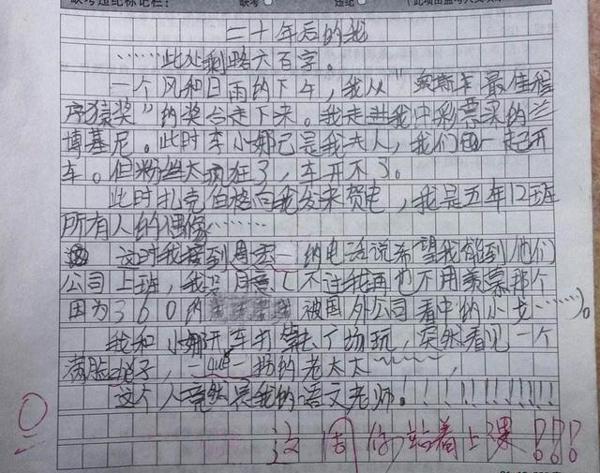 缺考违纪标记栏: 缺考 违纪
二十年后的我
……此处剩略六百字。
一个风和日雨的下午，我从“奥斯卡最佳程
序猿奖”的奖台走下来。我走进我中彩票买的兰
博基尼。此时李小娜已是我夫人，我们一起开
车。但粉丝太疯狂了，车开不了。
此时扎克伯格向我发来贺电，我是五年12班
所有人的偶像……
这时我接到周宏一的电话说希望我能到他们
公司上班，我没同意（不过我再也不用羡慕那个
因为360的 被国外公司看中的小龙……）。
我和小娜开车打算去广场玩，突然看见一个
满脸 子，一 一拐的老太太~~~~~，
这个人竟然是我的语文老师。!!!!!!!!!!
0
这周你站着上课!!!